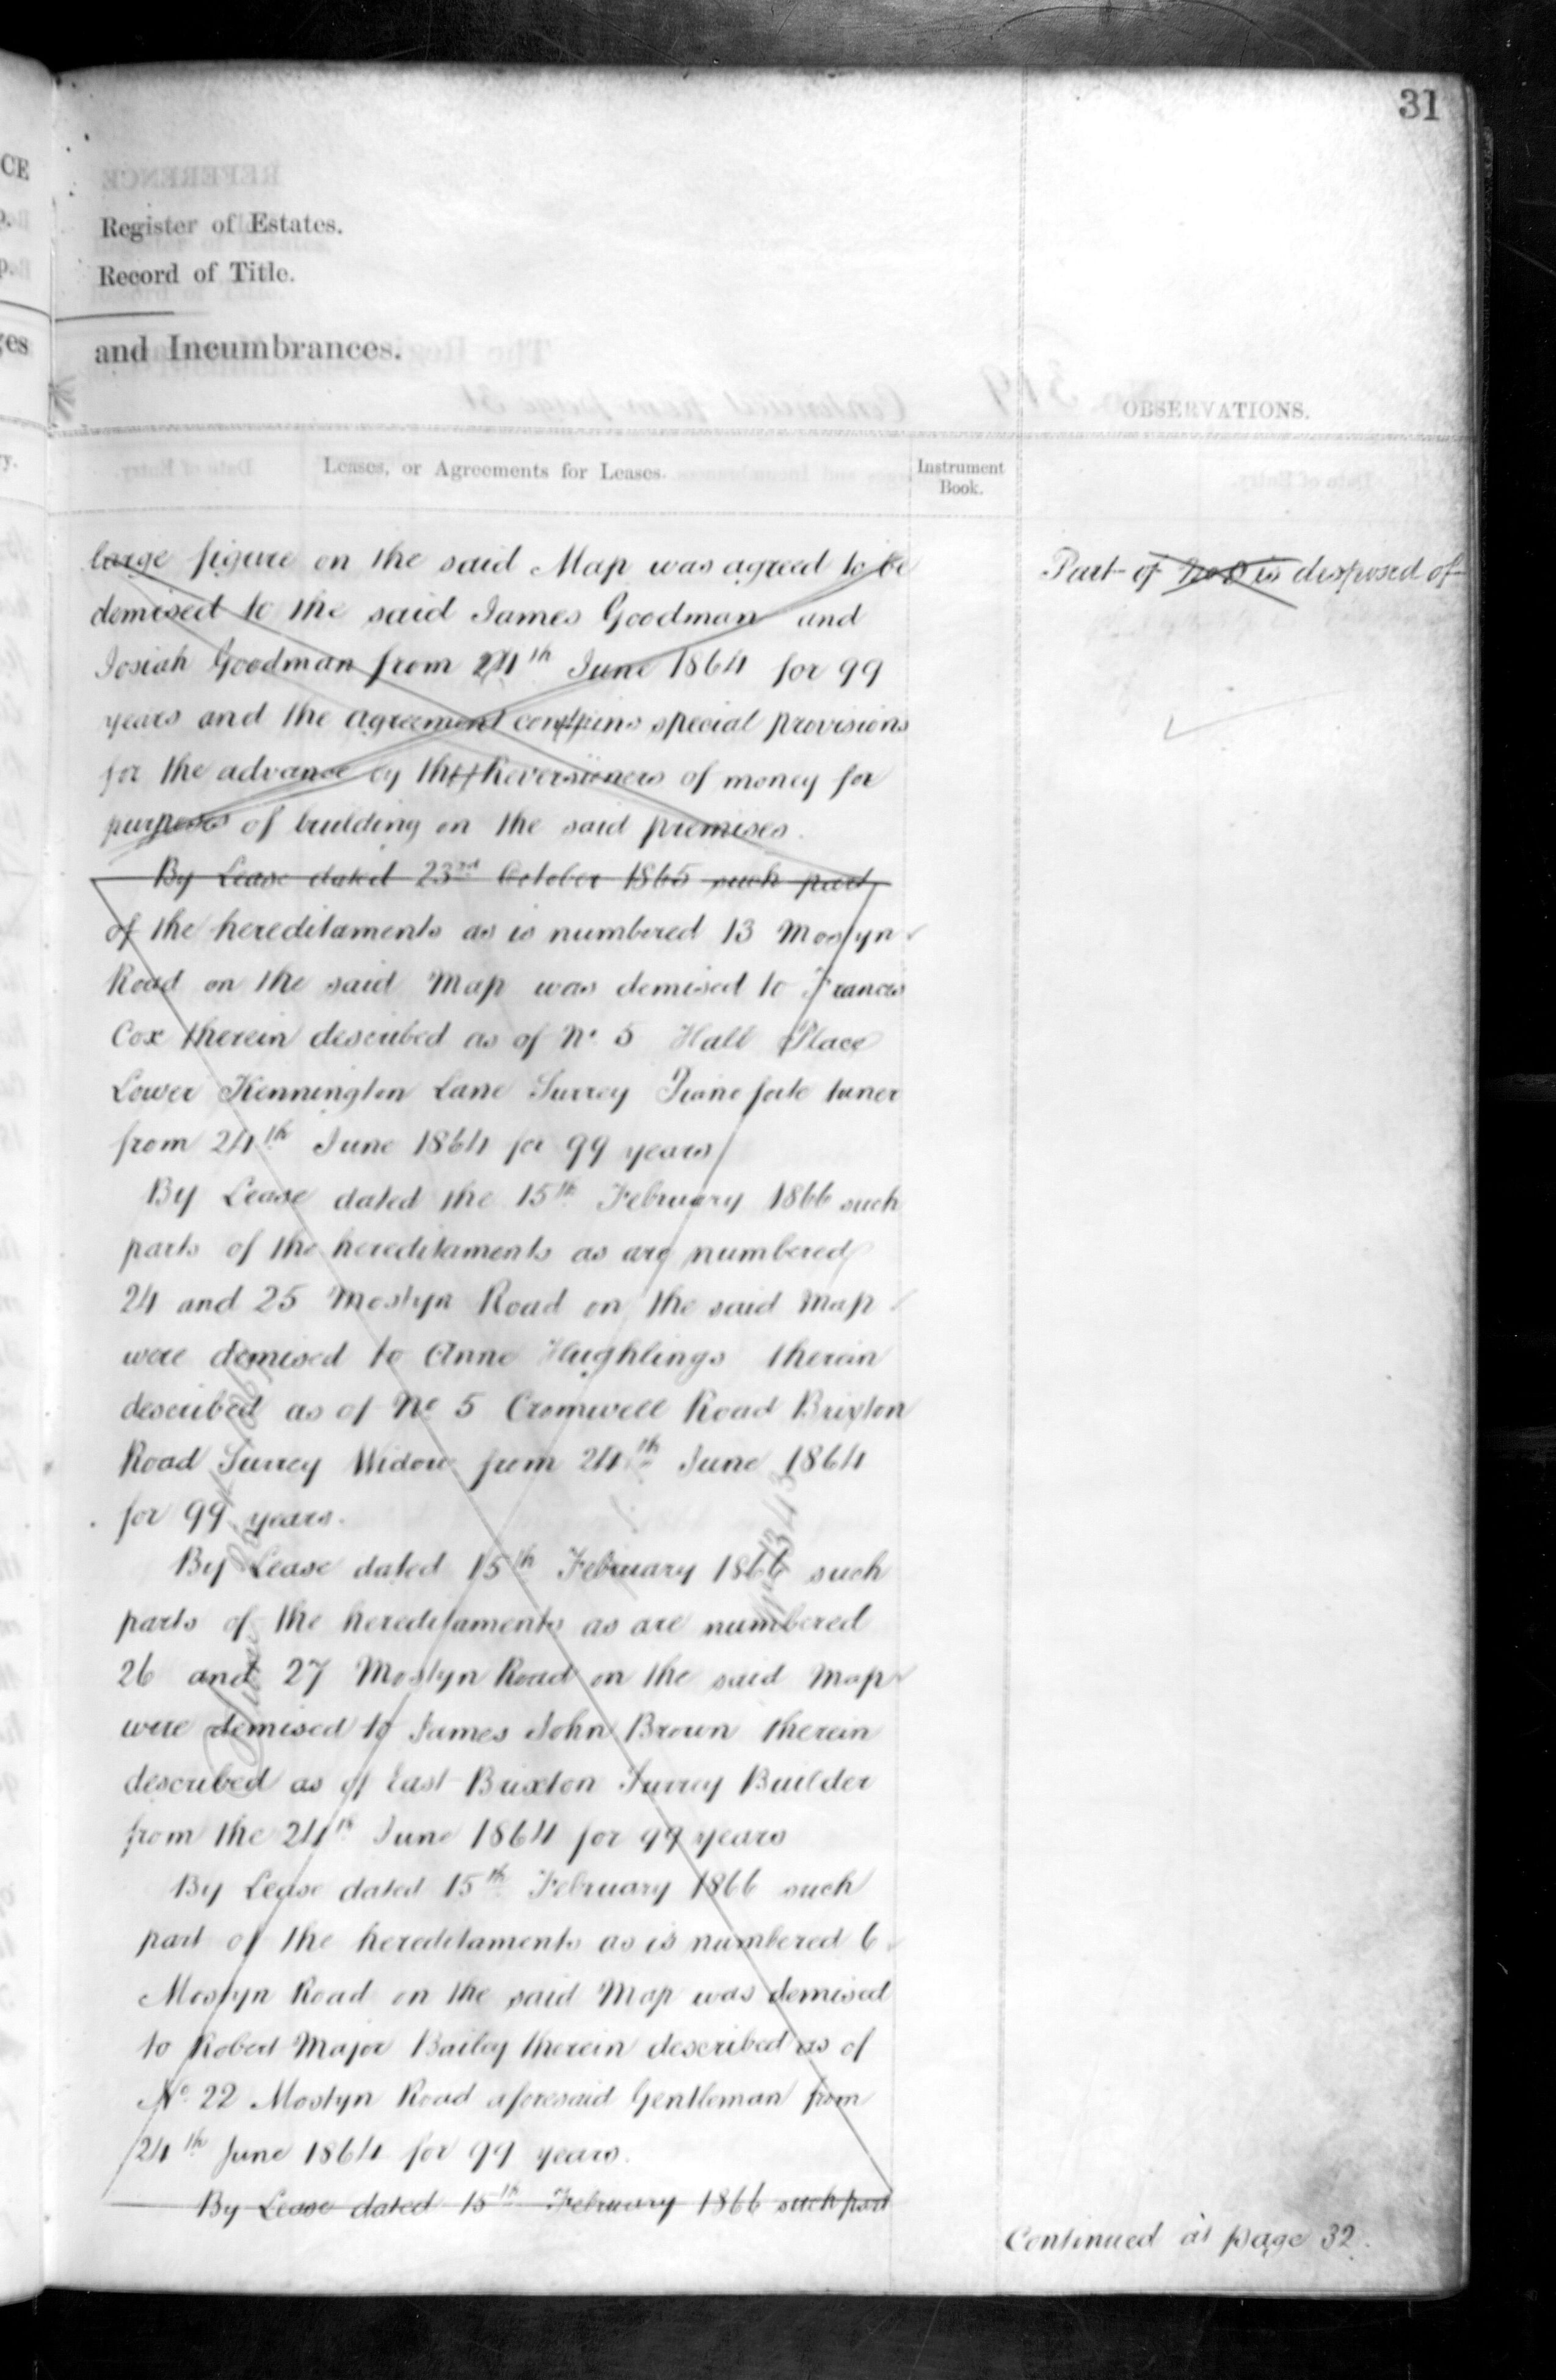 31
CE
Register of Estates.
Record of Title.
and Incumbrances.
OBSERVATIONS.
Leases, or Agreements for Leases.
Instrument
Book.
large figure on the said Map was agreed to be
demised to the said James Goodman and
Josiah Goodman from 24th June 1864 for 99
years and the agreement contains special provisions
for the advance by the Reversioners of money for
purposes of building on the said premises.
By Lease dated 23rd October 1865 such part
of the hereditaments as is numbered 13 Mostyn
Road on the said Map was demised to Francis
Cox therein described as of No. 5 Hall Place
Lower Kennington Lane Surrey Piano forte tuner
from 24th June 1864 for 99 years
By Lease dated the 15th February 1866 such
parts of the hereditaments as are numbered
24 and 25 Mostyn Road on the said Map
were demised to Anne Hughlings therein
described as of No 5 Cromwell Road Brixton
Road Surrey Widow from 24th June 1864
for 99 years.
By Lease dated 15th February 1866 such
parts of the hereditaments as are numbered
26 and 27 Mostyn Road on the said Map
were demised to James John Brown therein
described as of East Brixton Surrey Builder
from the 24th June 1864 for 99 years
By Lease dated 15th February 1866 such
part of the hereditaments as is numbered 6
Mostyn Road on the said Map was demised
to Robert Major Bailey therein described as of
No. 22 Mostyn Road aforesaid Gentleman from
24th June 1864 for 99 years.
By Lease dated 15th February 1866 such part
Part of is disposed of
Continued at page 32.